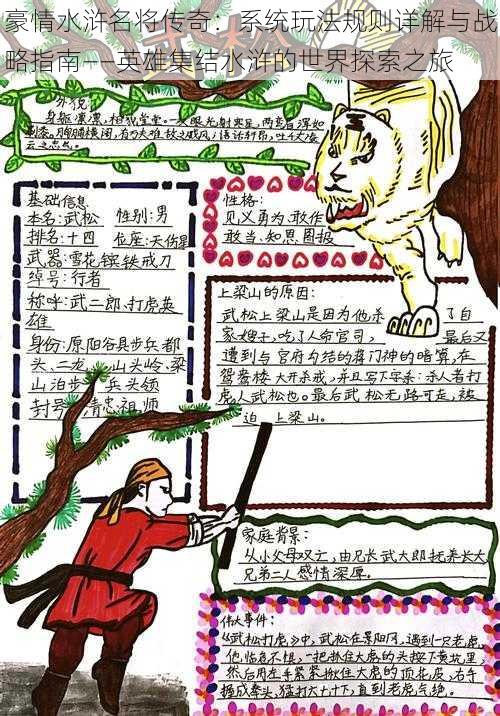 豪情水浒名将传奇：系统玩法规则详解与战
略指南——英雄集结水浒的世界探索之旅
外貌：
身躯凛凛，相貌堂堂。一双眼光射寒星，两弯眉浑如
刷漆。胸脯横阔，有万夫难敌之威风；语话轩昂，吐千丈凌
云之志气。
基础信息
本名：武松 性别：男
排名：十四 位座：天伤星
武器：雪花镔铁戒刀
绰号：行者
称呼：武二郎、打虎英
雄
身份：原阳谷县步兵都
头、二龙山头岭、梁
山泊步兵头领
封号：清忠祖师
性格：
见义勇为、敢作
敢当、知恩图报
上梁山的原因：
武松上梁山是因为他杀了自
家嫂子，吃了人命官司，最后又
遭到与官府勾结的蒋门神的暗算，在
鸳鸯楼大开杀戒，并且写下字条：杀人者打
虎人武松也。最后武松无路可走，被
迫上梁山。
家庭背景：
从小父母双亡，由兄长武大郎抚养长大，
兄弟二人感情深厚。
伟大事件：
《武松打虎》中，武松在景阳冈，遇到一只老虎，
他临危不惧，一把抓住大虎的头按下黄坑里，
然后用左手紧紧揪住大虎的顶花皮，右手
握成拳头，猛打六十下，直到老虎气绝。